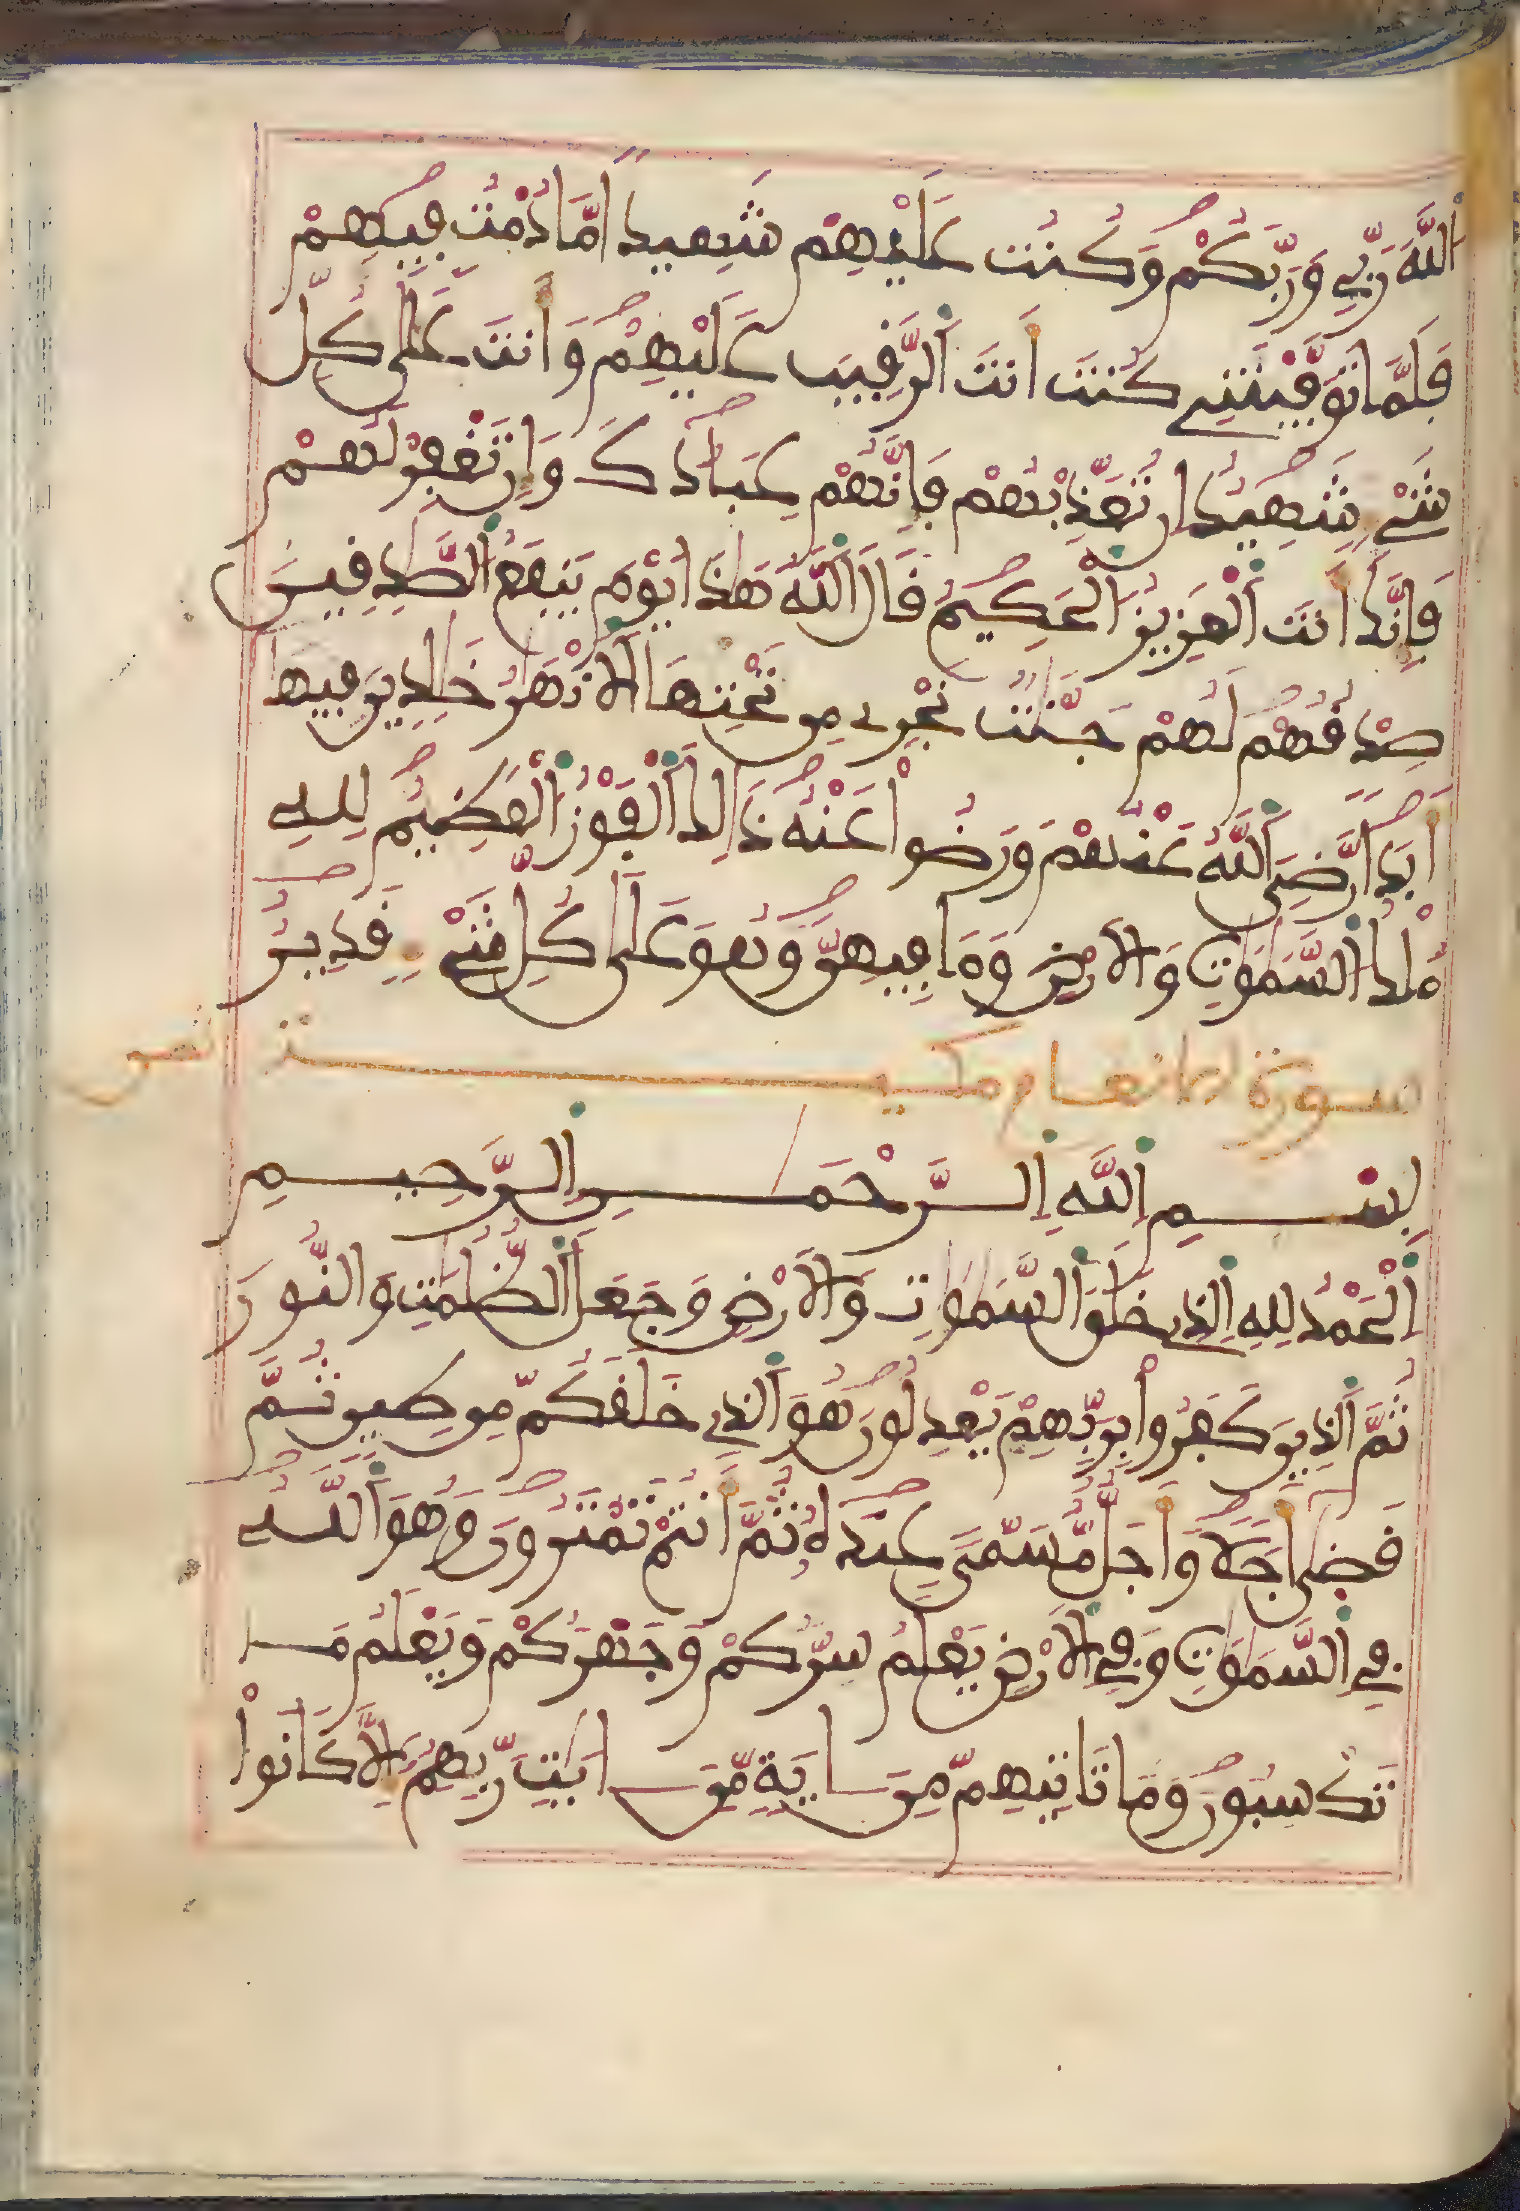 اَ۬للَّهَ رَبِّے وَرَبَّكُمْ وَكُنتُ عَلَيْهِمْ شَهِيداٗ مَّا دُمْتُ فِيهِمْ
فَلَمَّا تَوَفَّيْتَنِے كُنتَ أَنتَ اَ۬لرَّقِيبَ عَلَيْهِمْ وَأَنتَ عَلَىٰ كُلِّ
شَےْءٖ شَهِيدٌ اِن تُعَذِّبْهُمْ فَإِنَّهُمْ عِبَادُكَ وَإِن تَغْفِرْ لَهُمْ
فَإِنَّكَ أَنتَ اَ۬لْعَزِيزُ اُ۬لْحَكِيمُ قَالَ اَ۬للَّهُ هَٰذَا يَوْمَ يَنفَعُ اُ۬لصَّٰدِقِينَ
صِدْقُهُمْ لَهُمْ جَنَّٰتٞ تَجْرِے مِن تَحْتِهَا اَ۬لَانْهَٰرُ خَٰلِدِينَ فِيهَا
أَبَداٗ رَّضِيَ اَ۬للَّهُ عَنْهُمْ وَرَضُواْ عَنْهُ ذَٰلِكَ اَ۬لْفَوْزُ اُ۬لْعَظِيمُ لِلهِ
مُلْكُ اُ۬لسَّمَٰوَٰتِ وَالَارْضِ وَمَا فِيهِنَّ وَهُوَ عَلَىٰ كُلِّ شَےْءٖ قَدِيرٌ
سورة الانعام مكية
بِسْمِ اِ۬للَّهِ اِ۬لرَّحْمَٰنِ اِ۬لرَّحِيمِ
اِ۬لْحَمْدُ لِلهِ اِ۬لذِے خَلَقَ اَ۬لسَّمَٰوَٰتِ وَالَارْضَ وَجَعَلَ اَ۬لظُّلُمَٰتِ وَالنُّورَ
ثُمَّ اَ۬لذِينَ كَفَرُواْ بِرَبِّهِمْ يَعْدِلُونَ هُوَ اَ۬لذِے خَلَقَكُم مِّن طِينٖ ثُمَّ
قَضَىٰ أَجَلاٗ وَأَجَلٞ مُّسَمّيً عِندَهُۥ ثُمَّ أَنتُمْ تَمْتَرُونَ وَهُوَ اَ۬للَّهُ
فِے اِ۬لسَّمَٰوَٰتِ وَفِے اِ۬لَارْضِ يَعْلَمُ سِرَّكُمْ وَجَهْرَكُمْ وَيَعْلَمُ مَا
تَكْسِبُونَ وَمَا تَاتِيهِم مِّنَ اٰيَةٖ مِّنَ اٰيَٰتِ رَبِّهِمُۥ إِلَّا كَانُواْ